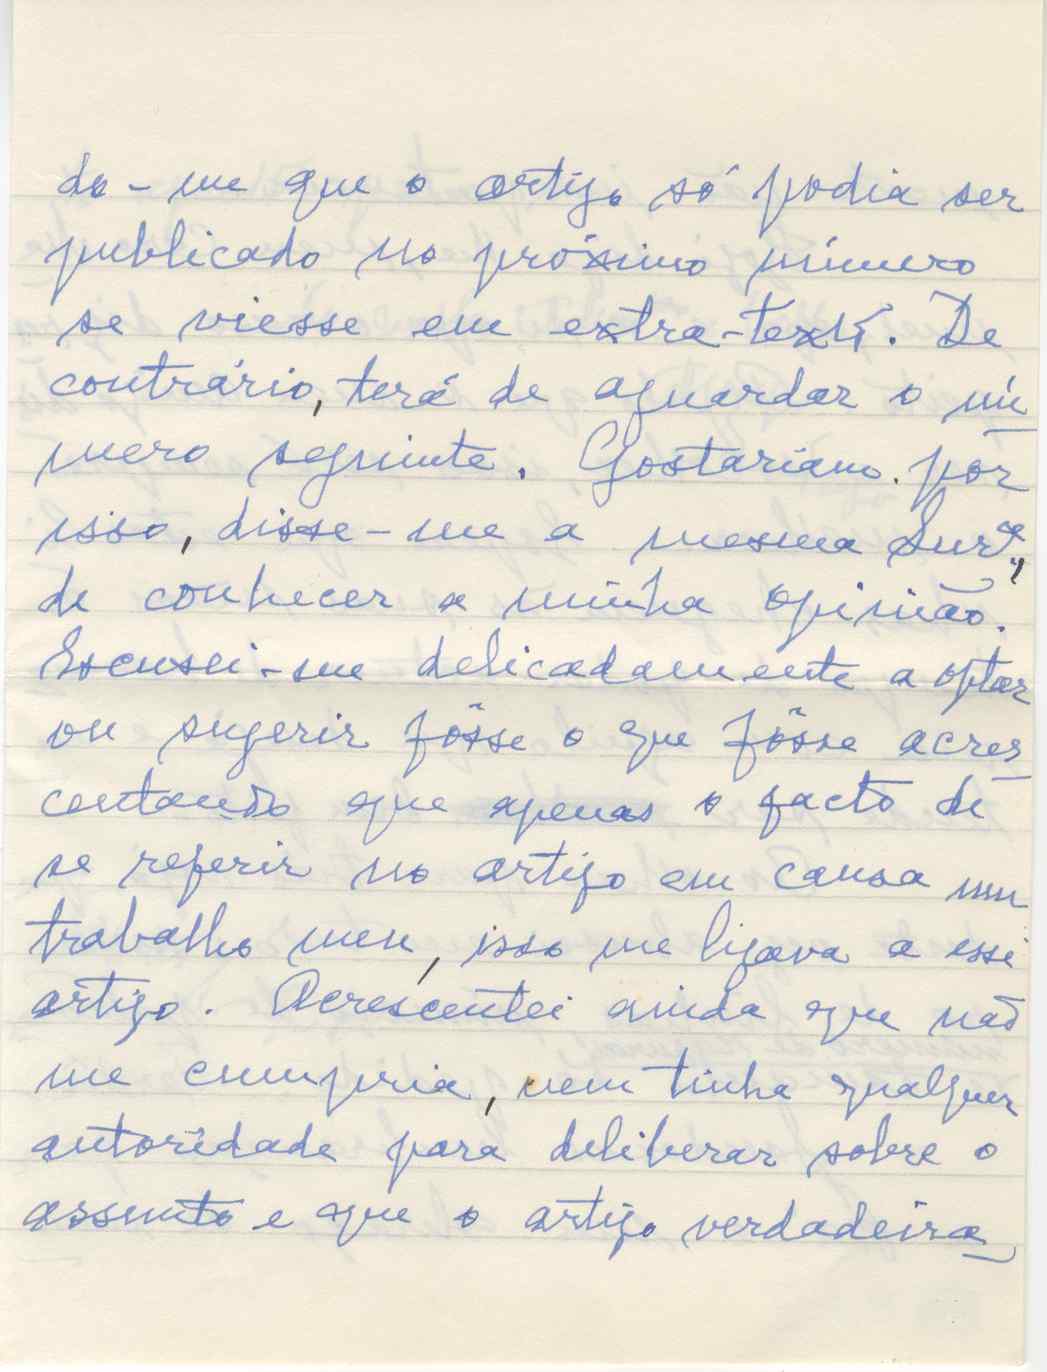 do-me que o artigo só podia ser
publicado no próximo número
se viesse em extra-texto. De
contrário, terá de aguardar o nú_
mero seguinte. Gostariam. por
isso, disse-me a mesma Snrª,
de conhecer a minha opinião.
Escusei-me delicadamente a optar
ou sugerir fôsse o que fôsse acres_
centando que apenas o facto de
se referir no artigo em causa um
trabalho meu, isso me ligava a esse
artigo. Acrescentei ainda que não
me cumpria, nem tinha qualquer
autoridade para deliberar sobre o
assunto e que o artigo verdadeira_